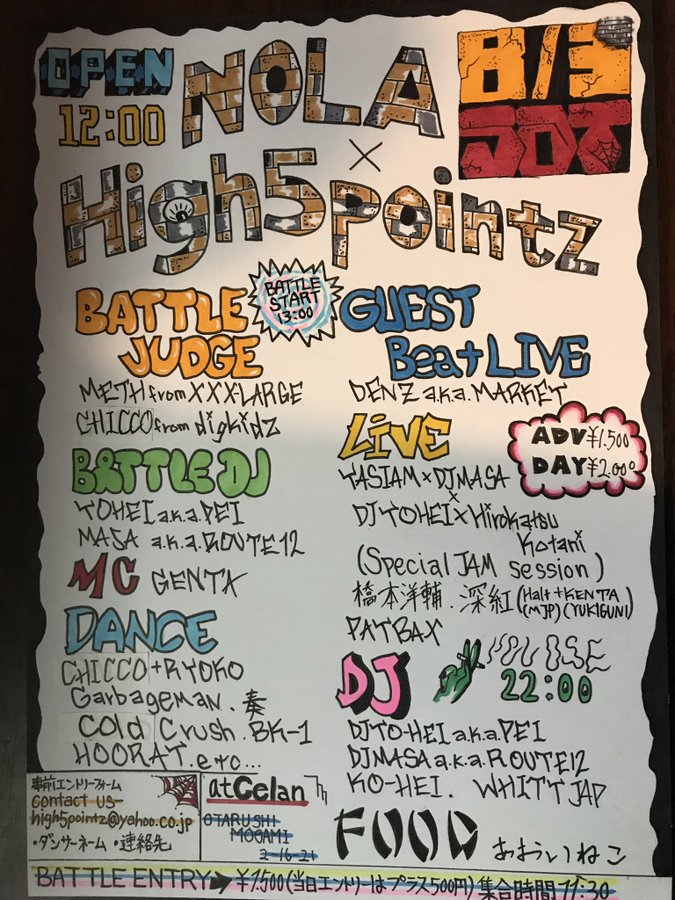 OPEN
12:00
NOLA
×
High5pointz
8/3
BATTLE
START
13:00
BATTLE
JUDGE
METH from XXX-LARGE
CHICCO from digkidz
BATTLE DJ
YOHEI a.k.a. PEI
MASA a.k.a. ROUTE 12
MC GENTA
DANCE
CHICCO + RYOKO
Garbageman. 奏
Cold Crush. BK-1
HOORAT. etc...
GUEST
Beat LIVE
DENZ a.k.a. MARKET
LIVE
ADV ¥1.500
DAY ¥2.000
TASIAM × DJ MASA
×
DJ TOHEI × Hirokatsu
Kotani
(Special JAM session)
橋本洋輔. 深紅 (Halt + KENTA
(MJP) (YUKIGUNI)
PATBAX
DJ
22:00
DJ TO-HEI a.k.a. PEI
DJ MASA a.k.a. ROUTE 12
KO-HEI. WHITT JAP
FOOD あおういねこ
事前エントリーフォーム
contact us
high5pointz@yahoo.co.jp
・ダンサーネーム ・連絡先
at Celan
OTARUSHI
MOGAMI
2-16-21
BATTLE ENTRY→¥1.500(当日エントリーはプラス500円) 集合時間 11:30